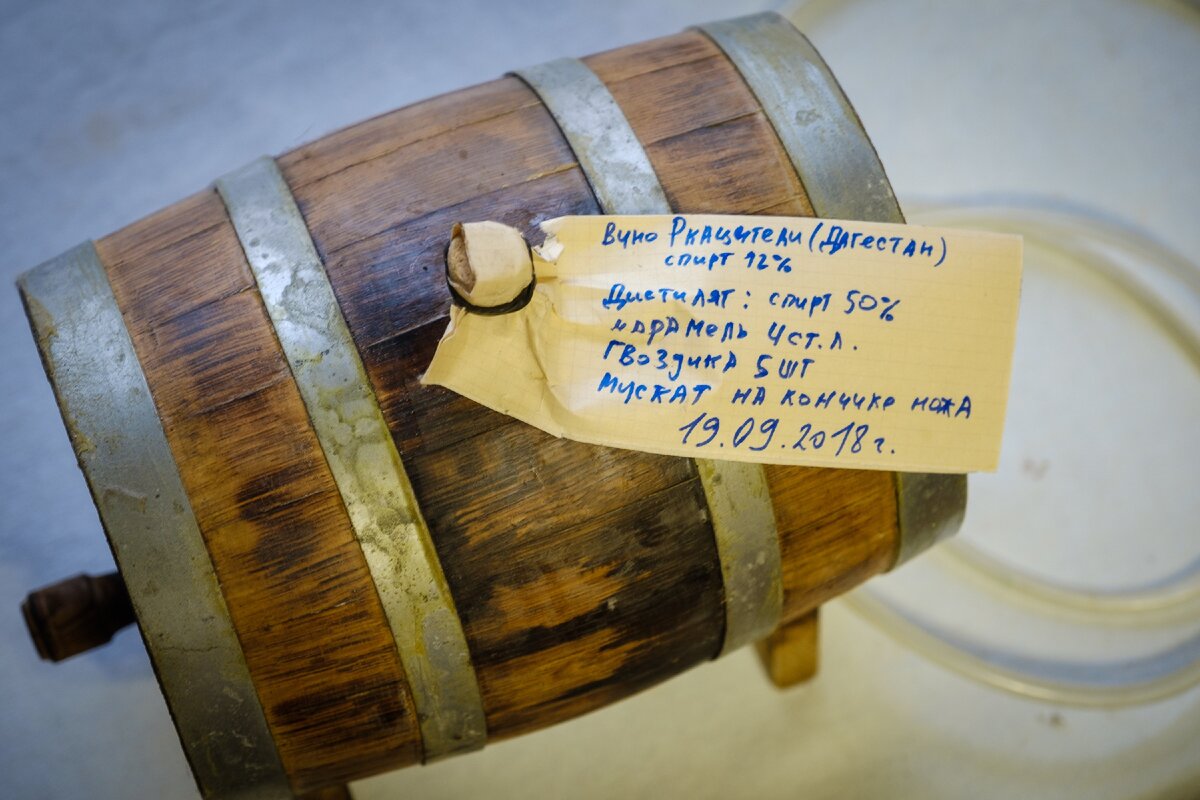 Вино Ркацители (Дагестан)
спирт 12%
Дистилят: спирт 50%
карамель 4ст.л.
гвоздика 5 шт
мускат на кончике ножа
19.09.2018г.